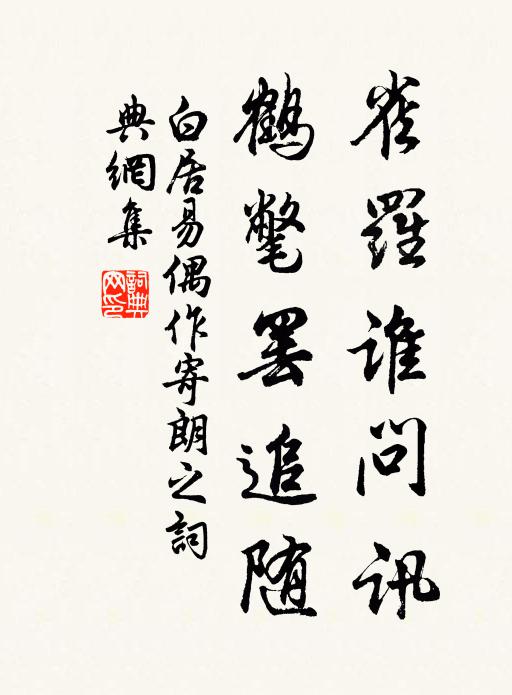 雀羅誰問訊
鶴氅罷追随
白居易偶作寄朗之詞
典網集
詞典網印